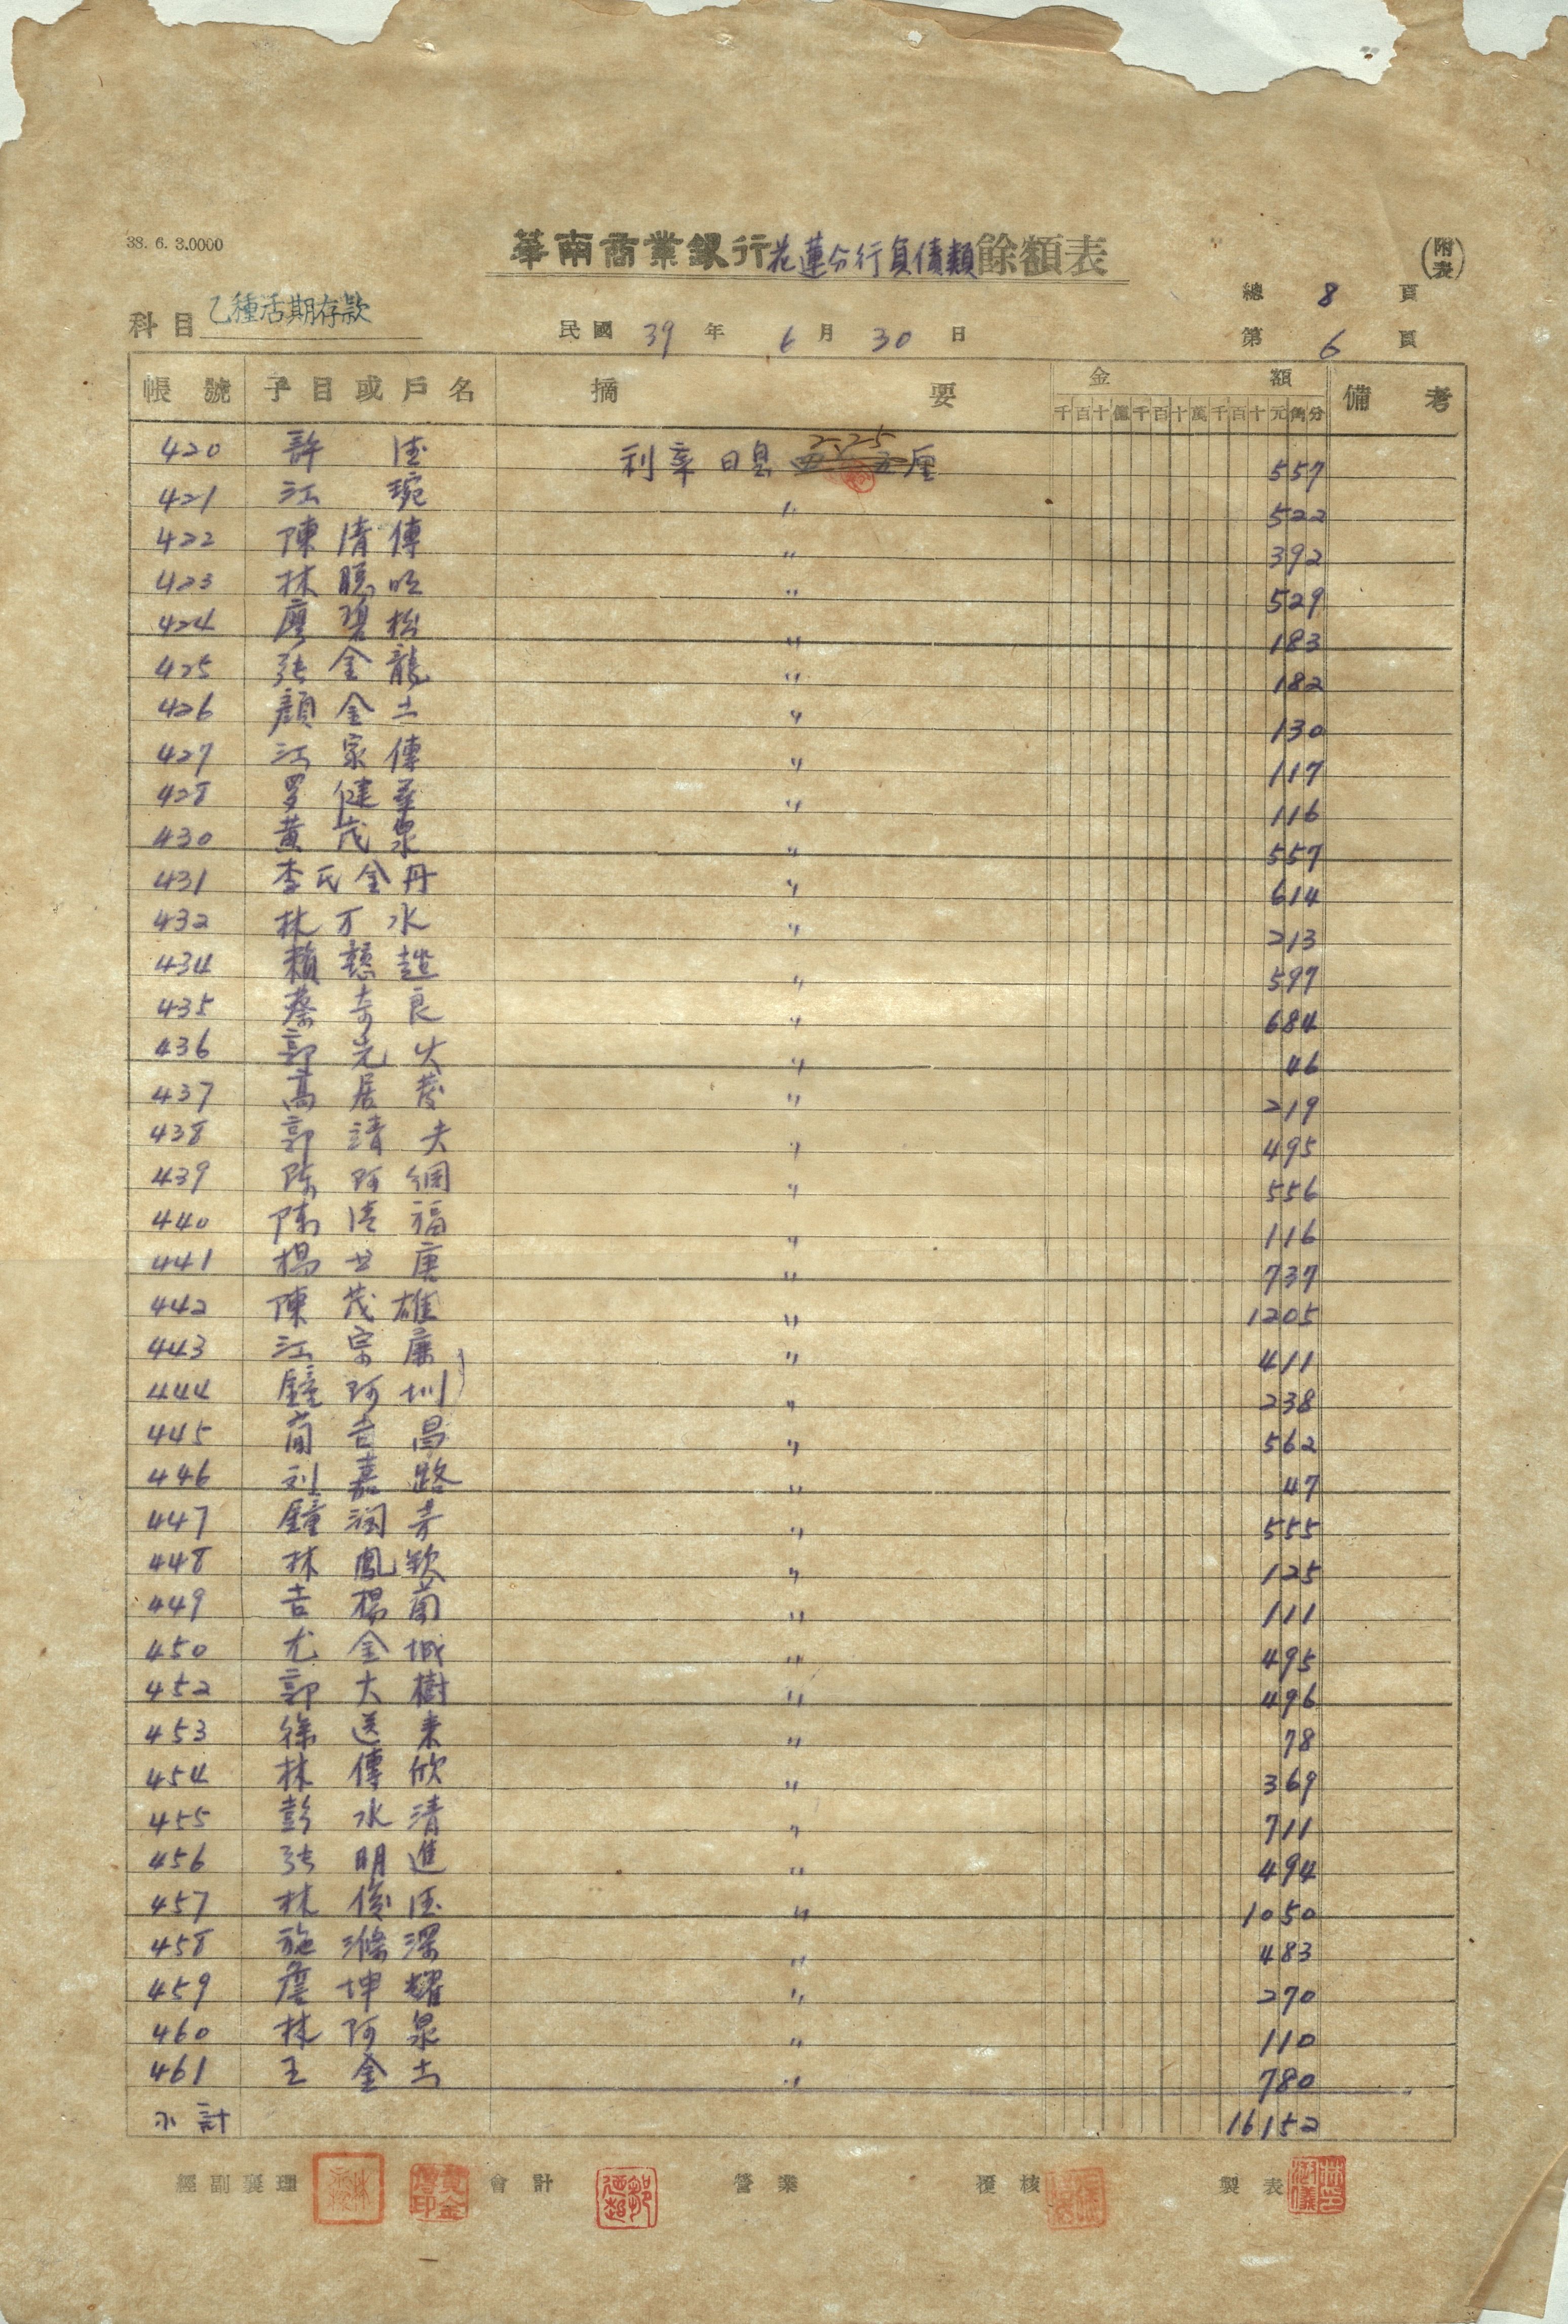 38. 6. 3.0000
華南商業銀行花蓮分行負債類餘額表
(附表)
總 8 頁
科目 乙種活期存款
民國 39 年 6 月 30 日
第 6 頁
帳號 子目或戶名 摘要 金額 備考
千百十億千百十萬千百十元角分
420 許 利率日息 2.25 厘 557
421 江琬 〃 522
422 陳清傳 〃 392
423 林聰明 〃 529
424 廖碧松 〃 183
425 張金龍 〃 182
426 顏金土 〃 130
427 江家傳 〃 117
428 罗健 〃 116
430 黃茂泉 〃 557
431 李氏金丹 〃 614
432 林才水 〃 213
434 賴 〃 597
435 蔡奇良 〃 684
436 郭光火 〃 46
437 高居 〃 219
438 郭清夫 〃 495
439 陈阿綢 〃 556
440 陳 福 〃 116
441 楊 庚 〃 737
442 陳茂雄 〃 1205
443 江宗廉 〃 411
444 鐘阿圳 〃 238
445 吉昌 〃 562
446 刘嘉路 〃 47
447 鐘潤 〃 555
448 林鳳 〃 125
449 吉楊 〃 111
450 尤金城 〃 495
452 郭大樹 〃 496
453 徐送来 〃 78
454 林傳欣 〃 369
455 彭水清 〃 711
456 張明進 〃 494
457 林俊 〃 1050
458 施滌深 〃 483
459 詹坤耀 〃 270
460 林阿泉 〃 110
461 王金土 〃 780
小計 16152
經副襄理 會計 營業 覆核 製表